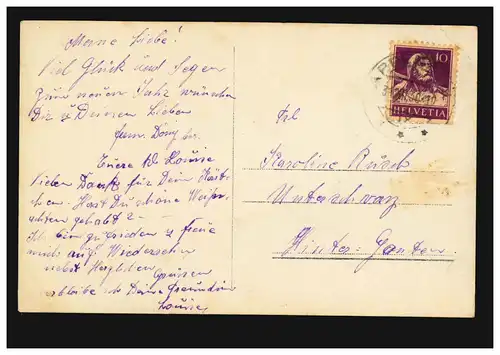 Meine Liebe!
Viel Glück und Segen
zum neuen Jahr wünschen
Dir u Deinen Lieben
fam.
Eurer Louise
Vielen Dank für Dein Kärt-
chen. Hast Du schöne Weihn-
achten gehabt?
Ich bin zufrieden u freue
mich auf Wiedersehn
nebst Herzlichen
Grüssen
verbleibe ich Deine Freundin
Louise
10
HELVETIA
Frl
Karoline Rusch
Unterschwarz
Hinter-Gonten